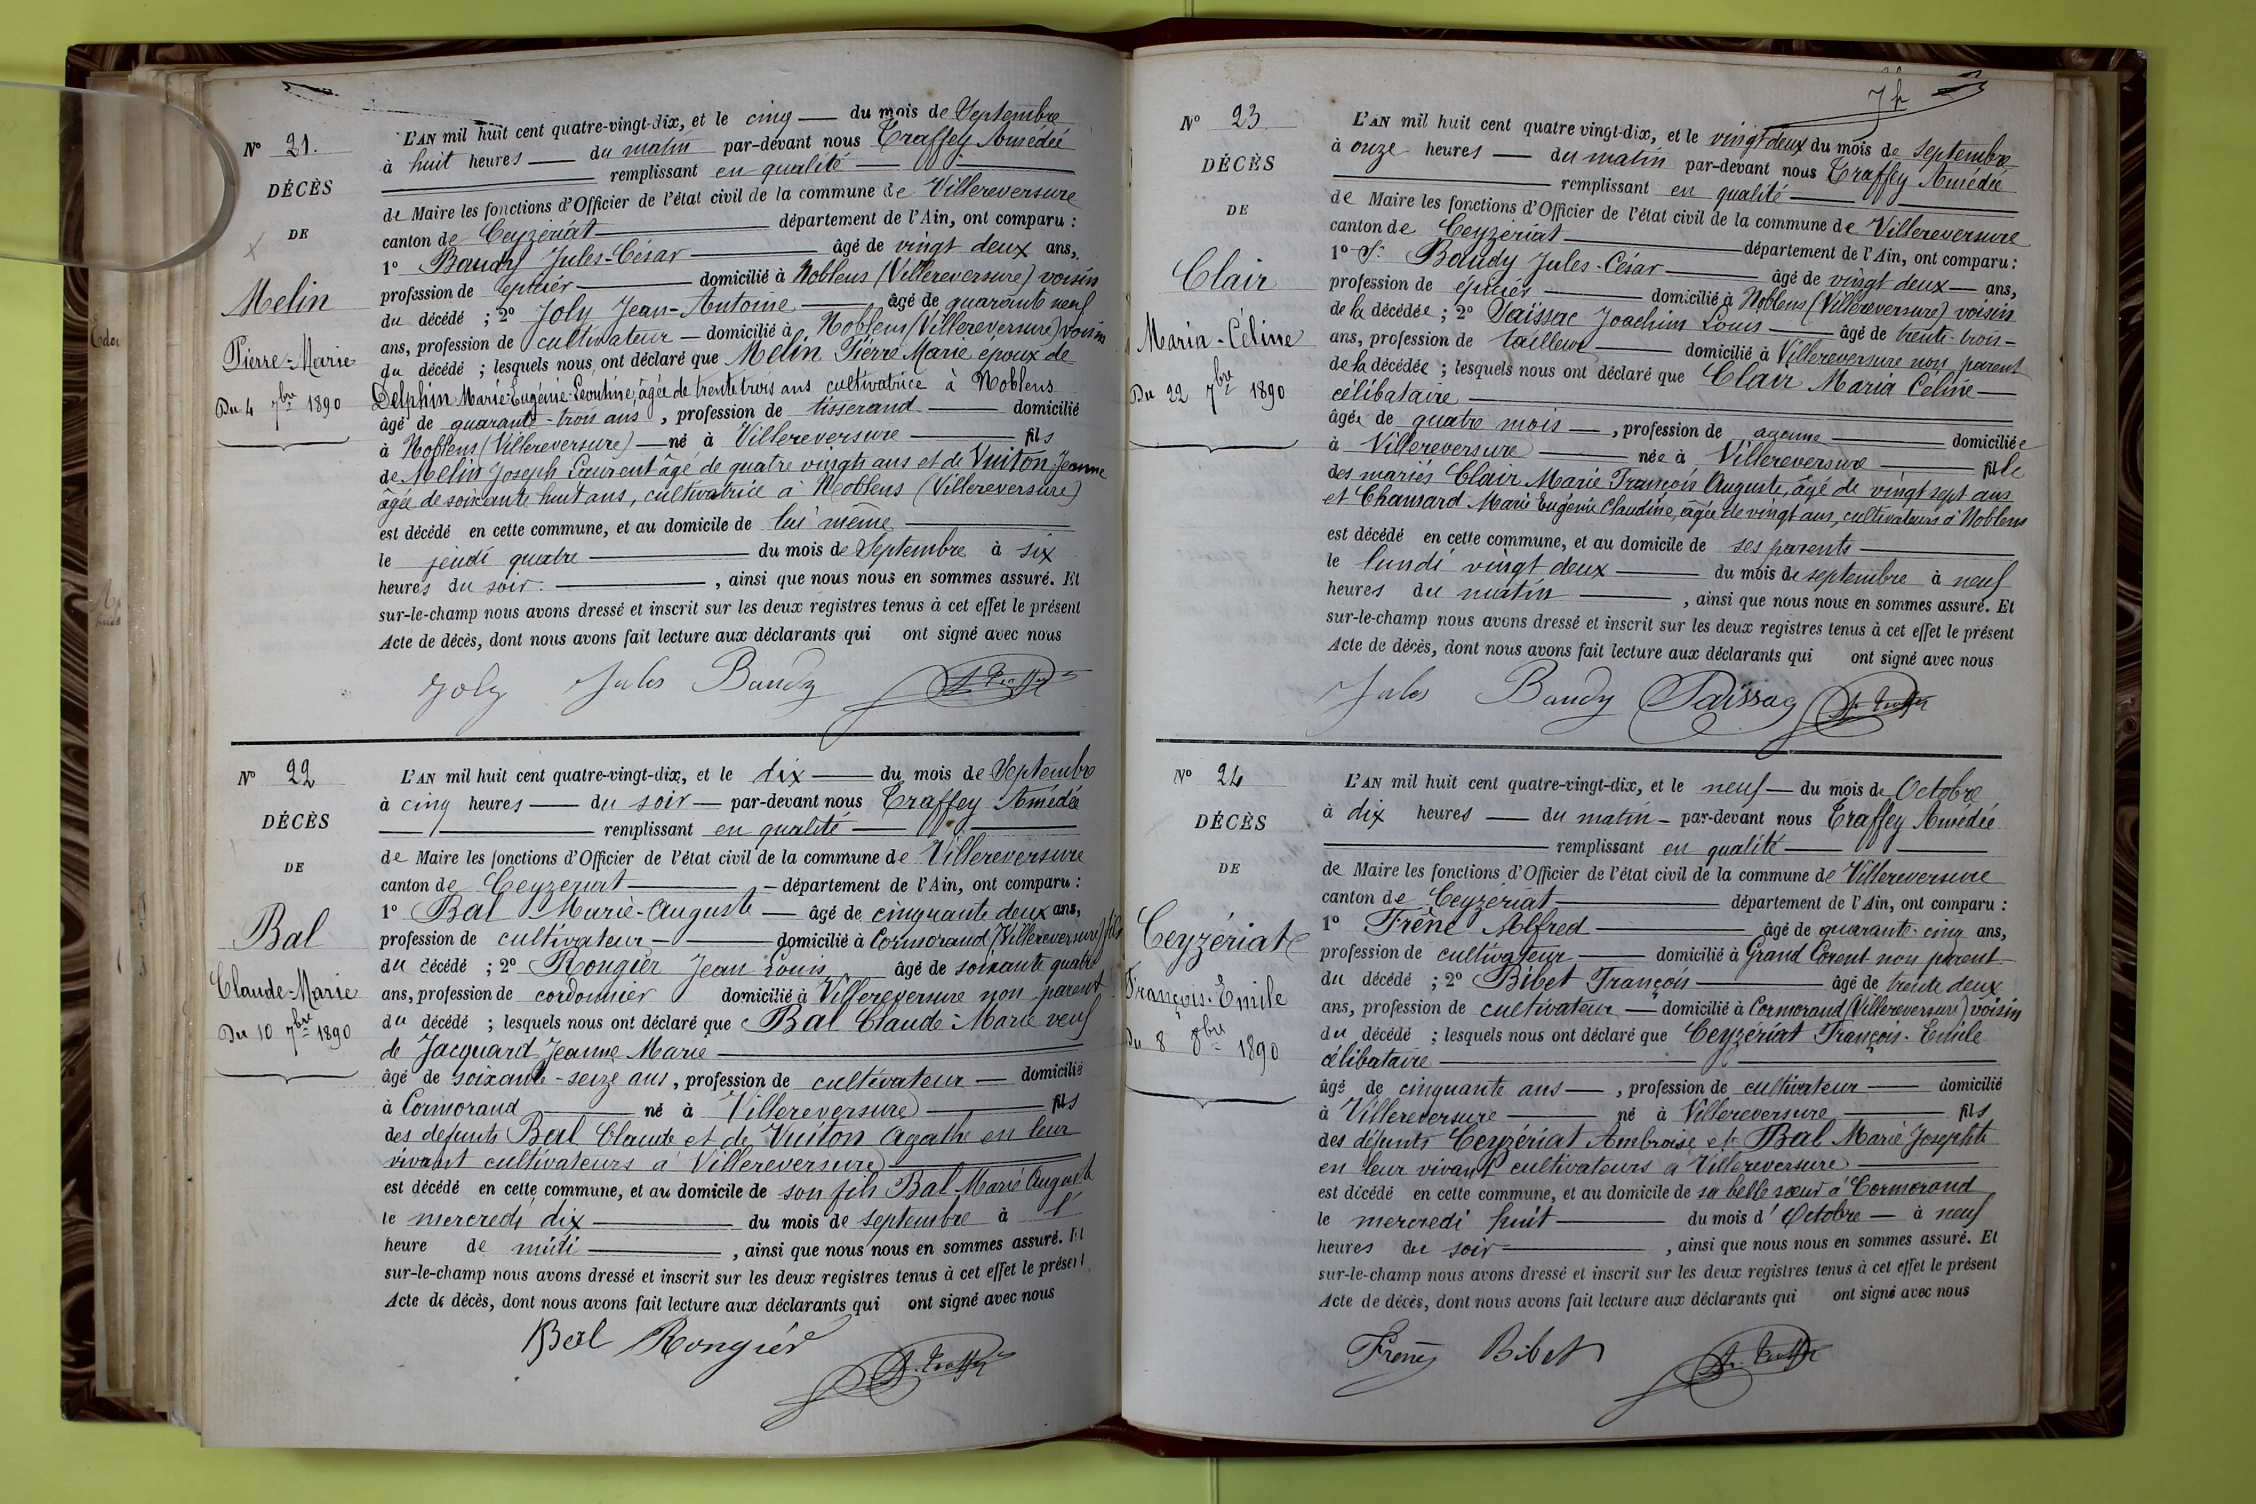 N° 21.
DÉCÈS
DE
Melin
Pierre-Marie
Du 4 7bre 1890
L'AN mil huit cent quatre-vingt-dix, et le cinq du mois de Septembre
à huit heures du matin par-devant nous Traffey Amédée
remplissant en qualité
de Maire les fonctions d'Officier de l'état civil de la commune de Villereversure
canton de Ceyzériat département de l'Ain, ont comparu :
1° Baudy Jules-César âgé de vingt deux ans,
profession de épicier domicilié à Noblens (Villereversure) voisin
du décédé ; 2° Joly Jean-Antoine âgé de quarante neuf
ans, profession de cultivateur domicilié à Noblens (Villereversure) voisin
du décédé ; lesquels nous ont déclaré que Melin Pierre Marie époux de
Delphin Marie-Eugénie-Léontine, âgée de trente trois ans cultivatrice à Noblens
âgé de quarante-trois ans, profession de tisserand domicilié
à Noblens (Villereversure) né à Villereversure fils
de Melin Joseph Laurent âgé de quatre vingts ans et de Vuiton Jeanne
âgée de soixante huit ans, cultivatrice à Noblens (Villereversure)
est décédé en cette commune, et au domicile de lui même
le jeudi quatre du mois de Septembre à six
heures du soir. , ainsi que nous nous en sommes assuré. Et
sur-le-champ nous avons dressé et inscrit sur les deux registres tenus à cet effet le présent
Acte de décès, dont nous avons fait lecture aux déclarants qui ont signé avec nous
Joly Jules Baudy
N° 22
DÉCÈS
DE
Bal
Claude-Marie
Du 10 7bre 1890
L'AN mil huit cent quatre-vingt-dix, et le dix du mois de Septembre
à cinq heures du soir par-devant nous Traffey Amédée
remplissant en qualité
de Maire les fonctions d'Officier de l'état civil de la commune de Villereversure
canton de Ceyzeriat département de l'Ain, ont comparu :
1° Bal Marie-Auguste âgé de cinquante deux ans,
profession de cultivateur domicilié à Cormorand (Villereversure) fils
du décédé ; 2° Rongier Jean Louis âgé de soixante quatre
ans, profession de cordonnier domicilié à Villereversure non parent
du décédé ; lesquels nous ont déclaré que Bal Claude-Marie veuf
de Jacquard Jeanne Marie
âgé de soixante-seize ans, profession de cultivateur domicilié
à Cormorand né à Villereversure fils
des défunts Bal Claude et de Vuiton Agathe en leur
vivant cultivateurs à Villereversure
est décédé en cette commune, et au domicile de son fils Bal Marie Auguste
le mercredi dix du mois de septembre à l'
heure de midi , ainsi que nous nous en sommes assuré. Et
sur-le-champ nous avons dressé et inscrit sur les deux registres tenus à cet effet le présent
Acte de décès, dont nous avons fait lecture aux déclarants qui ont signé avec nous
Bal Rongier
N° 23
DÉCÈS
DE
Clair
Maria-Céline
Du 22 7bre 1890
L'AN mil huit cent quatre vingt-dix, et le vingt deux du mois de septembre
à onze heures du matin par-devant nous Traffey Amédée
remplissant en qualité
de Maire les fonctions d'Officier de l'état civil de la commune de Villereversure
canton de Ceyzériat département de l'Ain, ont comparu :
1° Sr Baudy Jules-César âgé de vingt deux ans,
profession de épicier domicilié à Noblens (Villereversure) voisin
de la décédée ; 2° Saïssac Joachim Louis âgé de trente-trois
ans, profession de tailleur domicilié à Villereversure non parent
de la décédée ; lesquels nous ont déclaré que Clair Maria Céline
célibataire
âgée de quatre mois , profession de aucune domiciliée
à Villereversure née à Villereversure fille
des mariés Clair Marie François Auguste, âgé de vingt sept ans
et Chanvard Marie Eugénie Claudine, âgée de vingt ans, cultivateurs à Noblens
est décédé en cette commune, et au domicile de ses parents
le lundi vingt deux du mois de septembre à neuf
heures du matin , ainsi que nous nous en sommes assuré. Et
sur-le-champ nous avons dressé et inscrit sur les deux registres tenus à cet effet le présent
Acte de décès, dont nous avons fait lecture aux déclarants qui ont signé avec nous
Jules Baudy Saïssac
N° 24
DÉCÈS
DE
Ceyzériat
François-Emile
Du 8 8bre 1890
L'AN mil huit cent quatre-vingt-dix, et le neuf du mois de Octobre
à dix heures du matin par-devant nous Traffey Amédée
remplissant en qualité
de Maire les fonctions d'Officier de l'état civil de la commune de Villereversure
canton de Ceyzériat département de l'Ain, ont comparu :
1° Frène Alfred âgé de quarante-cinq ans,
profession de cultivateur domicilié à Grand Corent non parent
du décédé ; 2° Bibet François âgé de trente deux
ans, profession de cultivateur domicilié à Cormorand (Villereversure) voisin
du décédé ; lesquels nous ont déclaré que Ceyzériat François-Emile
célibataire
âgé de cinquante ans , profession de cultivateur domicilié
à Villereversure né à Villereversure fils
des défunts Ceyzériat Ambroise et Bal Marie Josephte
en leur vivant cultivateurs à Villereversure
est décédé en cette commune, et au domicile de sa belle sœur à Cormorand
le mercredi huit du mois d'Octobre à neuf
heures du soir , ainsi que nous nous en sommes assuré. Et
sur-le-champ nous avons dressé et inscrit sur les deux registres tenus à cet effet le présent
Acte de décès, dont nous avons fait lecture aux déclarants qui ont signé avec nous
Frène Bibet